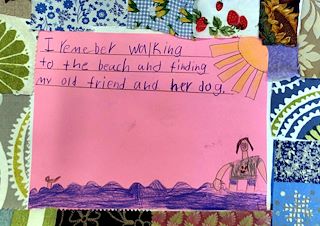 I remeber walking
to the beach and finding
my old friend and her dog.